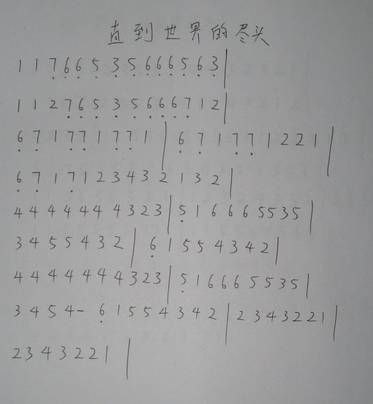 直到世界的尽头
1 1 7̣ 6̣ 6̣ 5̣ 3̣ 5̣ 6̣ 6̣ 6̣ 5̣ 6̣ 3̣ |
1 1 2 7̣ 6̣ 5̣ 3̣ 5̣ 6̣ 6̣ 6̣ 7̣ 1 2 |
6̣ 7̣ 1 7̣ 7̣ 1 7̣ 7̣ 1 | 6̣ 7̣ 1 7̣ 7̣ 1 2 2 1 |
6̣ 7̣ 1 7̣ 1 2 3 4 3 2 1 3 2 |
4 4 4 4 4 4 4 3 2 3 | 5̣ 1 6 6 6 5 5 3 5 |
3 4 5 5 4 3 2 | 6̣ 1 5 5 4 3 4 2 |
4 4 4 4 4 4 4 3 2 3 | 5̣ 1 6 6 6 5 5 3 5 |
3 4 5 4 - 6̣ 1 5 5 4 3 4 2 | 2 3 4 3 2 2 1 |
2 3 4 3 2 2 1 |